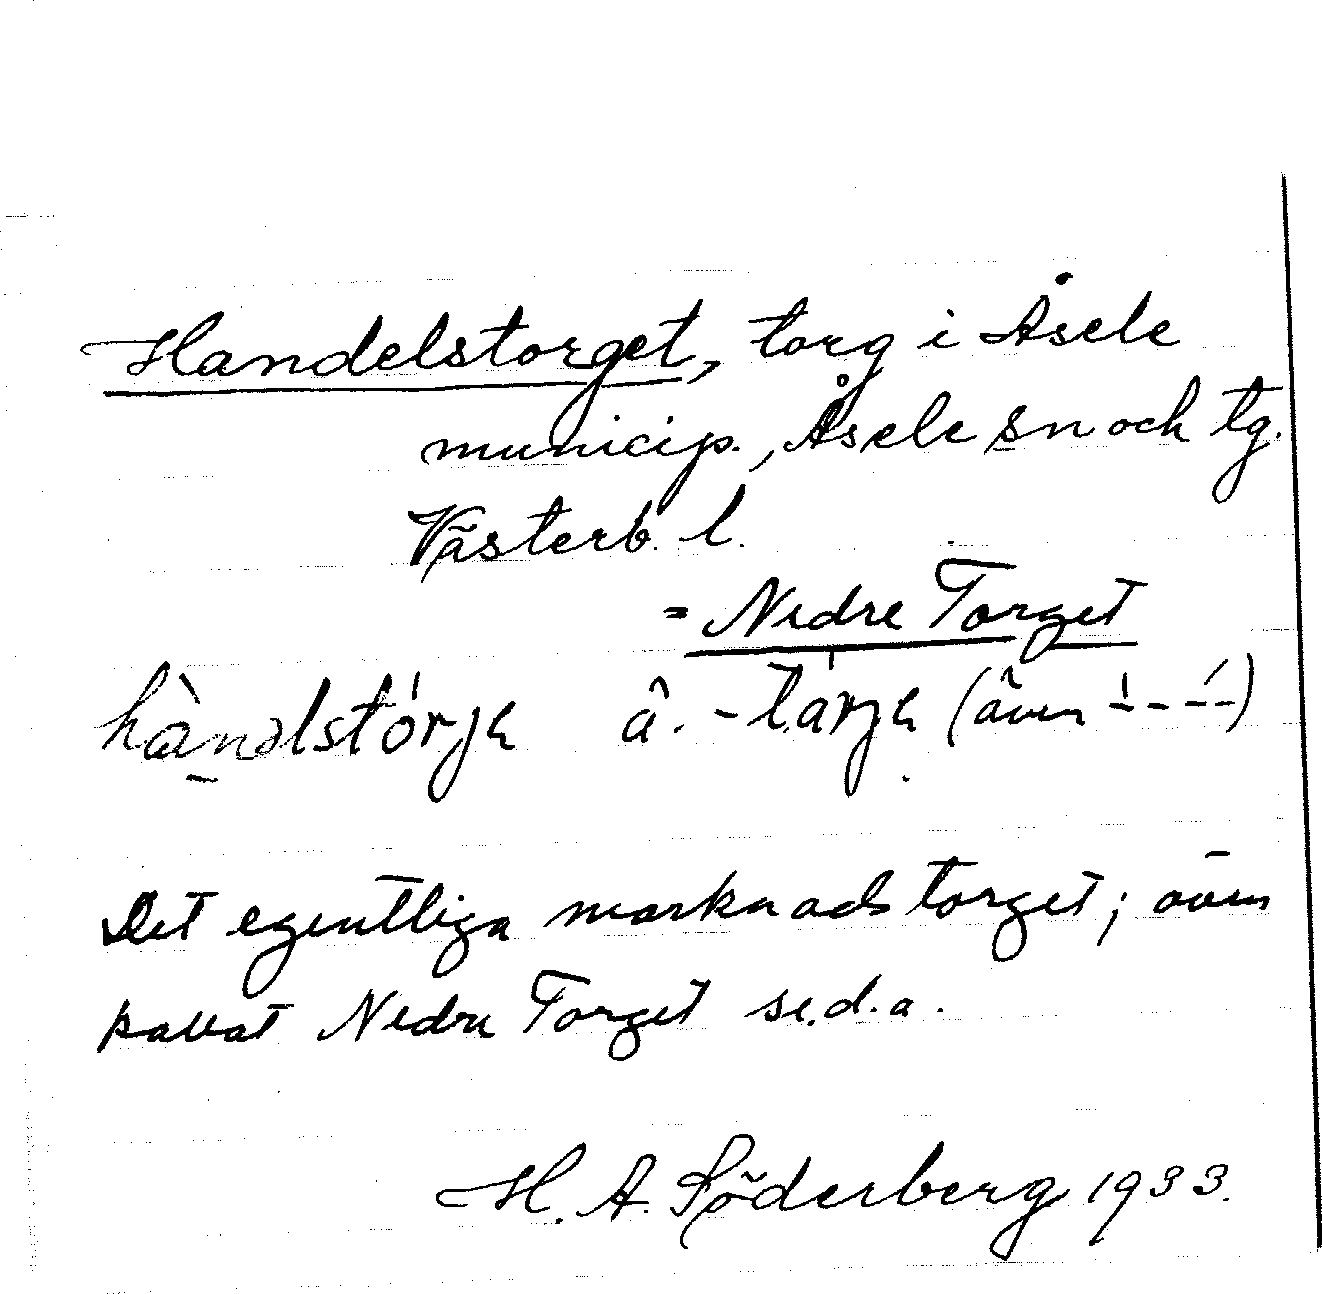 Handelstorget, torg i Åsele
municip., Åsele sn och tg.
Västerb. l.
= Nedre Torget
hàndlstórjɛ â. -tárjɛ (även ---)
Det egentliga marknadstorget; även
kallat Nedre Torget se.d.a.
H. A. Söderberg 1933.